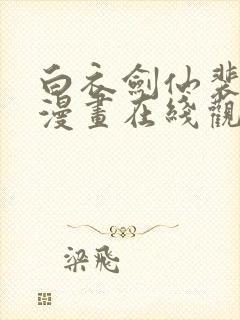 白衣劍仙裴
漫畫在綫觀
梁飛